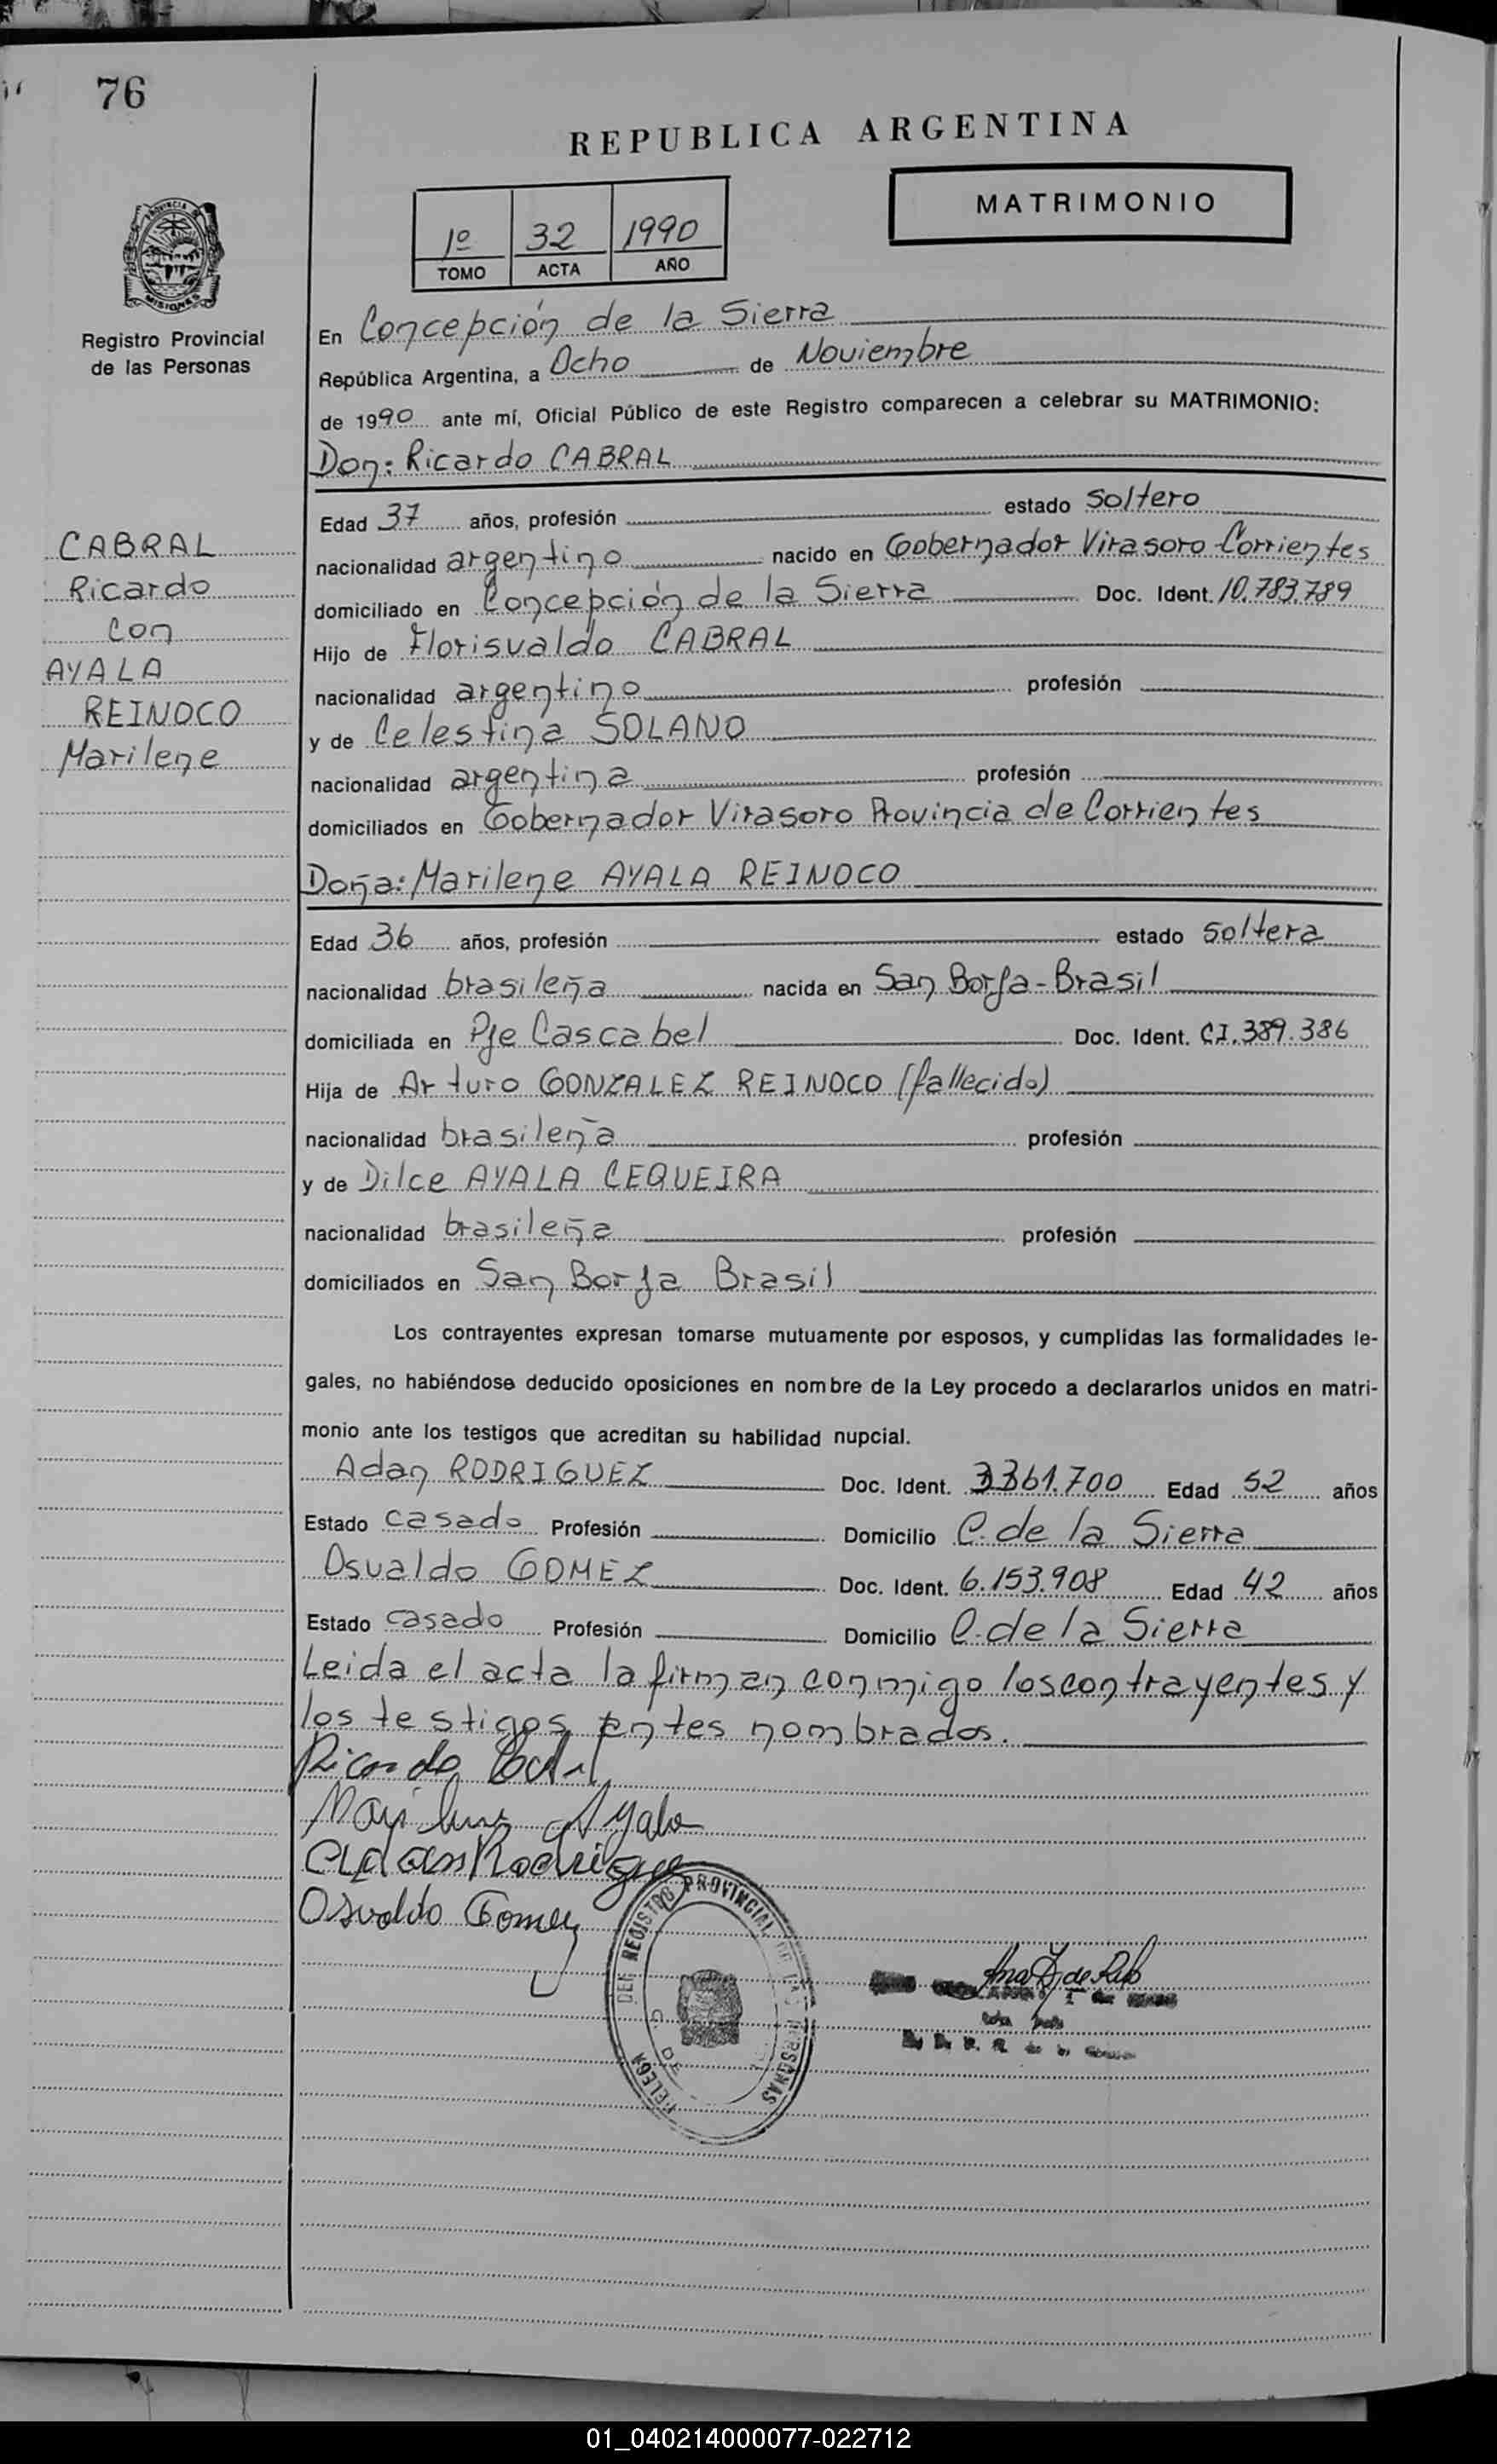 76
REPUBLICA ARGENTINA
MATRIMONIO
1º 32 1990
TOMO ACTA AÑO
PROVINCIA DE
MISIONES
Registro Provincial
de las Personas
CABRAL
Ricardo
Con
AYALA
REINOCO
Marilene
En Concepción de la Sierra
República Argentina, a Ocho de Noviembre
de 1990 ante mí, Oficial Público de este Registro comparecen a celebrar su MATRIMONIO:
Don: Ricardo CABRAL
Edad 37 años, profesión estado Soltero
nacionalidad argentino nacido en Gobernador Virasoro Corrientes
domiciliado en Concepción de la Sierra Doc. Ident. 10.783.789
Hijo de Florisvaldo CABRAL
nacionalidad argentino profesión
y de Celestina SOLANO
nacionalidad argentina profesión
domiciliados en Gobernador Virasoro Provincia de Corrientes
Doña: Marilene AYALA REINOCO
Edad 36 años, profesión estado Soltera
nacionalidad brasileña nacida en San Borja-Brasil
domiciliada en Pje Cascabel Doc. Ident. CI.389.386
Hija de Arturo GONZALEZ REINOCO (fallecido)
nacionalidad brasileña profesión
y de Dilce AYALA CEQUEIRA
nacionalidad brasileña profesión
domiciliados en San Borja Brasil
Los contrayentes expresan tomarse mutuamente por esposos, y cumplidas las formalidades le-
gales, no habiéndose deducido oposiciones en nombre de la Ley procedo a declararlos unidos en matri-
monio ante los testigos que acreditan su habilidad nupcial.
Adan RODRIGUEZ Doc. Ident. 3361.700 Edad 52 años
Estado casado Profesión Domicilio C. de la Sierra
Osvaldo GOMEZ Doc. Ident. 6.153.908 Edad 42 años
Estado casado Profesión Domicilio C. de la Sierra
Leida el acta la firman conmigo los contrayentes y
los testigos antes nombrados.
Ricardo Cabral
Marilene Ayala
Adan Rodriguez
Osvaldo Gomez
DEL REGISTRO PROVINCIAL DE LAS PERSONAS
01_040214000077-022712